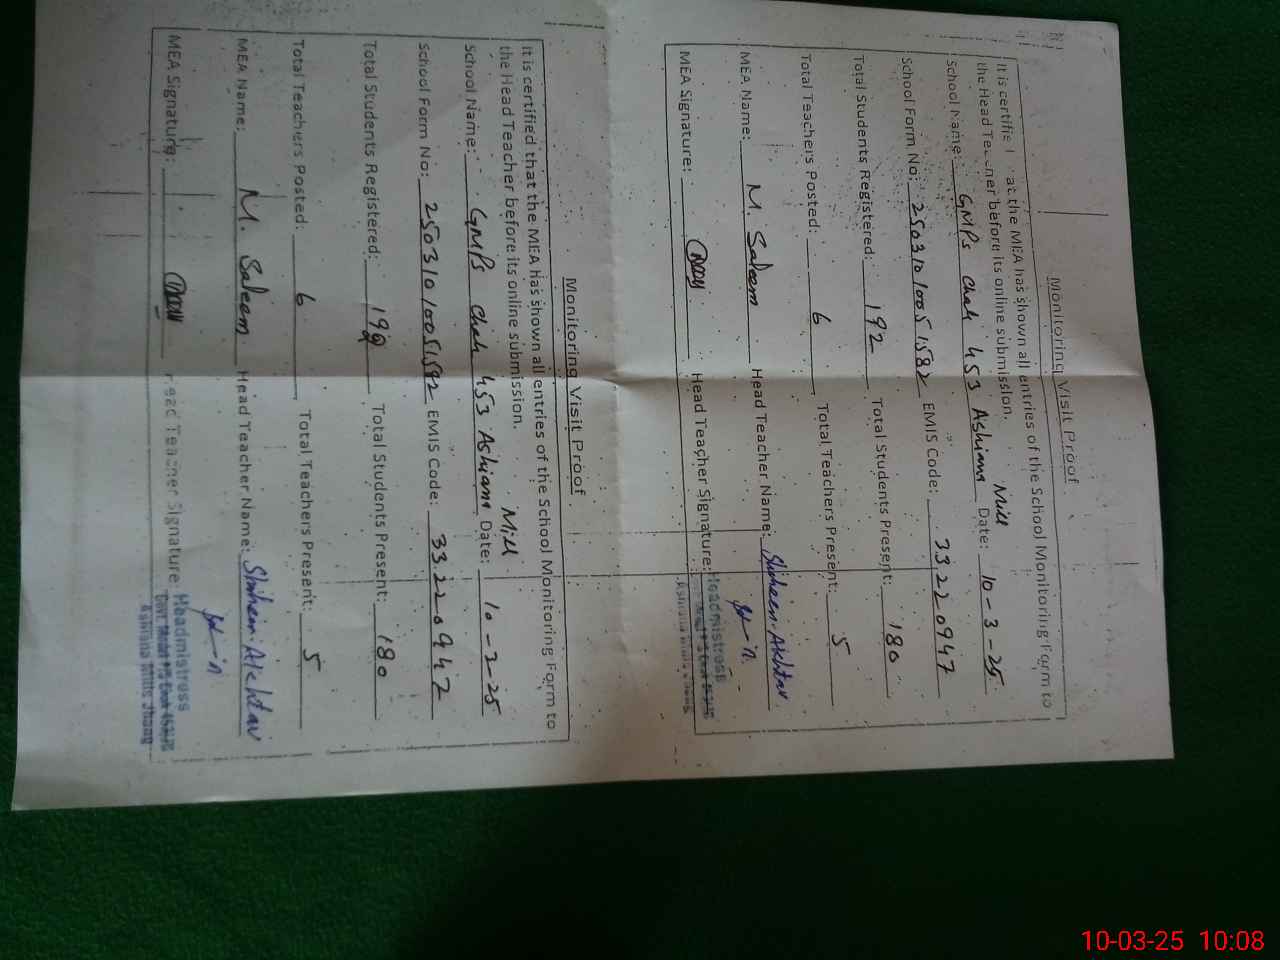 Monitoring Visit Proof
It is certified that the MEA has shown all entries of the School Monitoring Form to
the Head Teacher before its online submission.
Mill
School Name: GMPS Chak 453 Ashiana Date: 10-3-25
School Form No: 25031010051582 EMIS Code: 33220947
Total Students Registered: 192 Total Students Present: 180
Total Teachers Posted: 6 Total Teachers Present: 5
MEA Name: M. Saleem Head Teacher Name: Shaheen Akhtar
MEA Signature: Head Teacher Signature: Headmistress
Monitoring Visit Proof
It is certified that the MEA has shown all entries of the School Monitoring Form to
the Head Teacher before its online submission.
Mill
School Name: GMPS Chak 453 Ashiana Date: 10-3-25
School Form No: 25031010051582 EMIS Code: 33220947
Total Students Registered: 192 Total Students Present: 180
Total Teachers Posted: 6 Total Teachers Present: 5
MEA Name: M. Saleem Head Teacher Name: Shaheen Akhtar
MEA Signature: Head Teacher Signature: Headmistress
Ashiana Mills Jhang
10-03-25 10:08